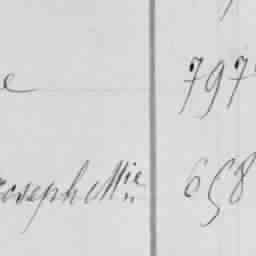 e 797
Joseph Mie 658